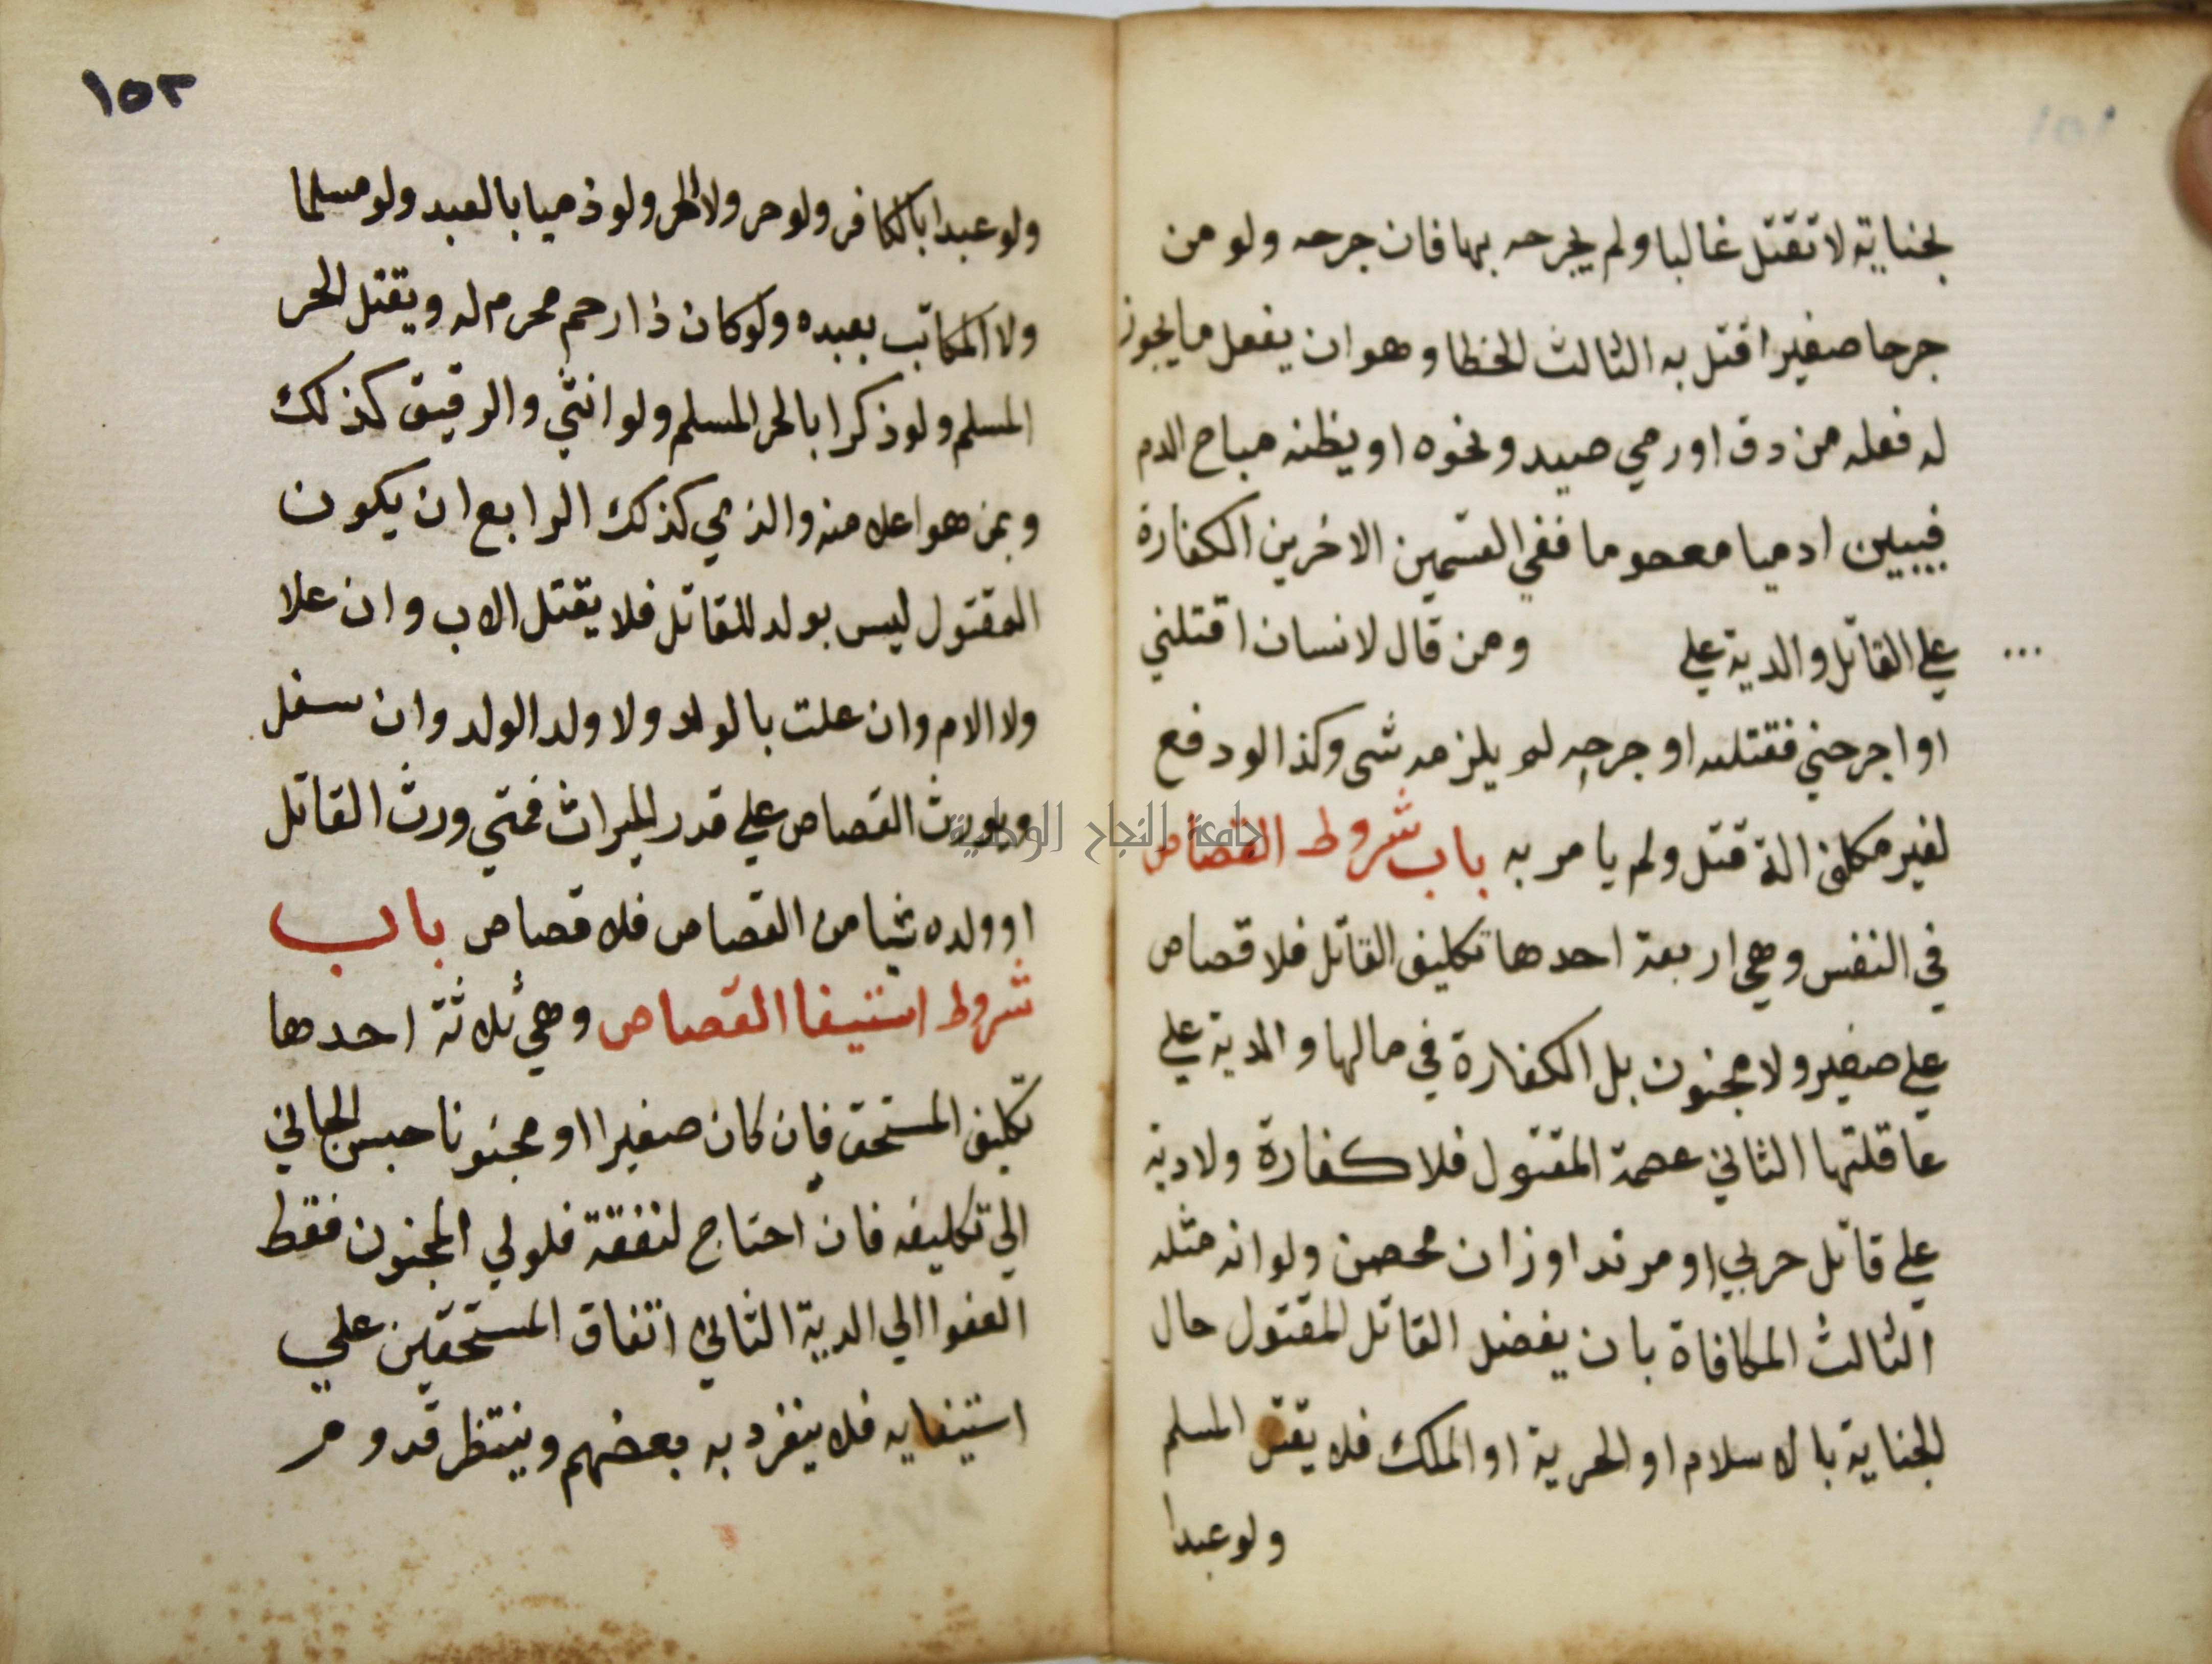 بجناية لا تقتل غالبا ولم يجرحه بها فان جرحه ولو من
جرحا صغيرا قتل به الثالث الخطا وهو ان يفعل ما يجوز
له فعله من دق او رمي صيد ونحوه او يظنه مباح الدم
فيبين ادميا معصوما ففي القسمين الاخرين الكفارة
علي القاتل والدية علي ومن قال لانسان اقتلني
او اجرحني فقتله او جرحه لم يلزمه شي وكذا لو دفع
لغير مكلف الة قتل ولم يامر به باب شروط القصاص
في النفس وهي اربعة احدها تكليف القاتل فلا قصاص
علي صغير ولا مجنون بل الكفارة في مالها والدية علي
عاقلتها الثاني عصمة المقتول فلا كفارة ولا دية
علي قاتل حربي او مرتد او زان محصن ولو انه مثله
الثالث المكافاة بان يفضل القاتل المقتول حال
الجناية بالاسلام او الحرية او الملك فلا يقتل المسلم
ولو عبدا
١٥٢
ولو عبدا بالكافر ولو حر ولا الحر ولو ذميا بالعبد ولو مسلما
ولا المكاتب بعبده ولو كان ذا رحم محرم له ويقتل الحر
المسلم ولو ذكرا بالحر المسلم ولو انثي والرقيق كذلك
وبمن هو اعلا منه والذمي كذلك الرابع ان يكون
المقتول ليس بولد للقاتل فلا يقتل الاب وان علا
ولا الام وان علت بالولد ولا ولد الولد وان سفل
ويورث القصاص علي قدر الميراث فمتي ورث القاتل
او ولده شيا من القصاص فلا قصاص باب
شروط استيفا القصاص وهي ثلاثة احدها
تكليف المستحق فان كان صغيرا او مجنونا حبس الجاني
الي تكليفه فان احتاج لنفقة فلولي المجنون فقط
العفوا الي الدية الثاني اتفاق المستحقين علي
استيفايه فلا ينفرد به بعضهم وينتظر قدوم
جامعة النجاح الوطنية